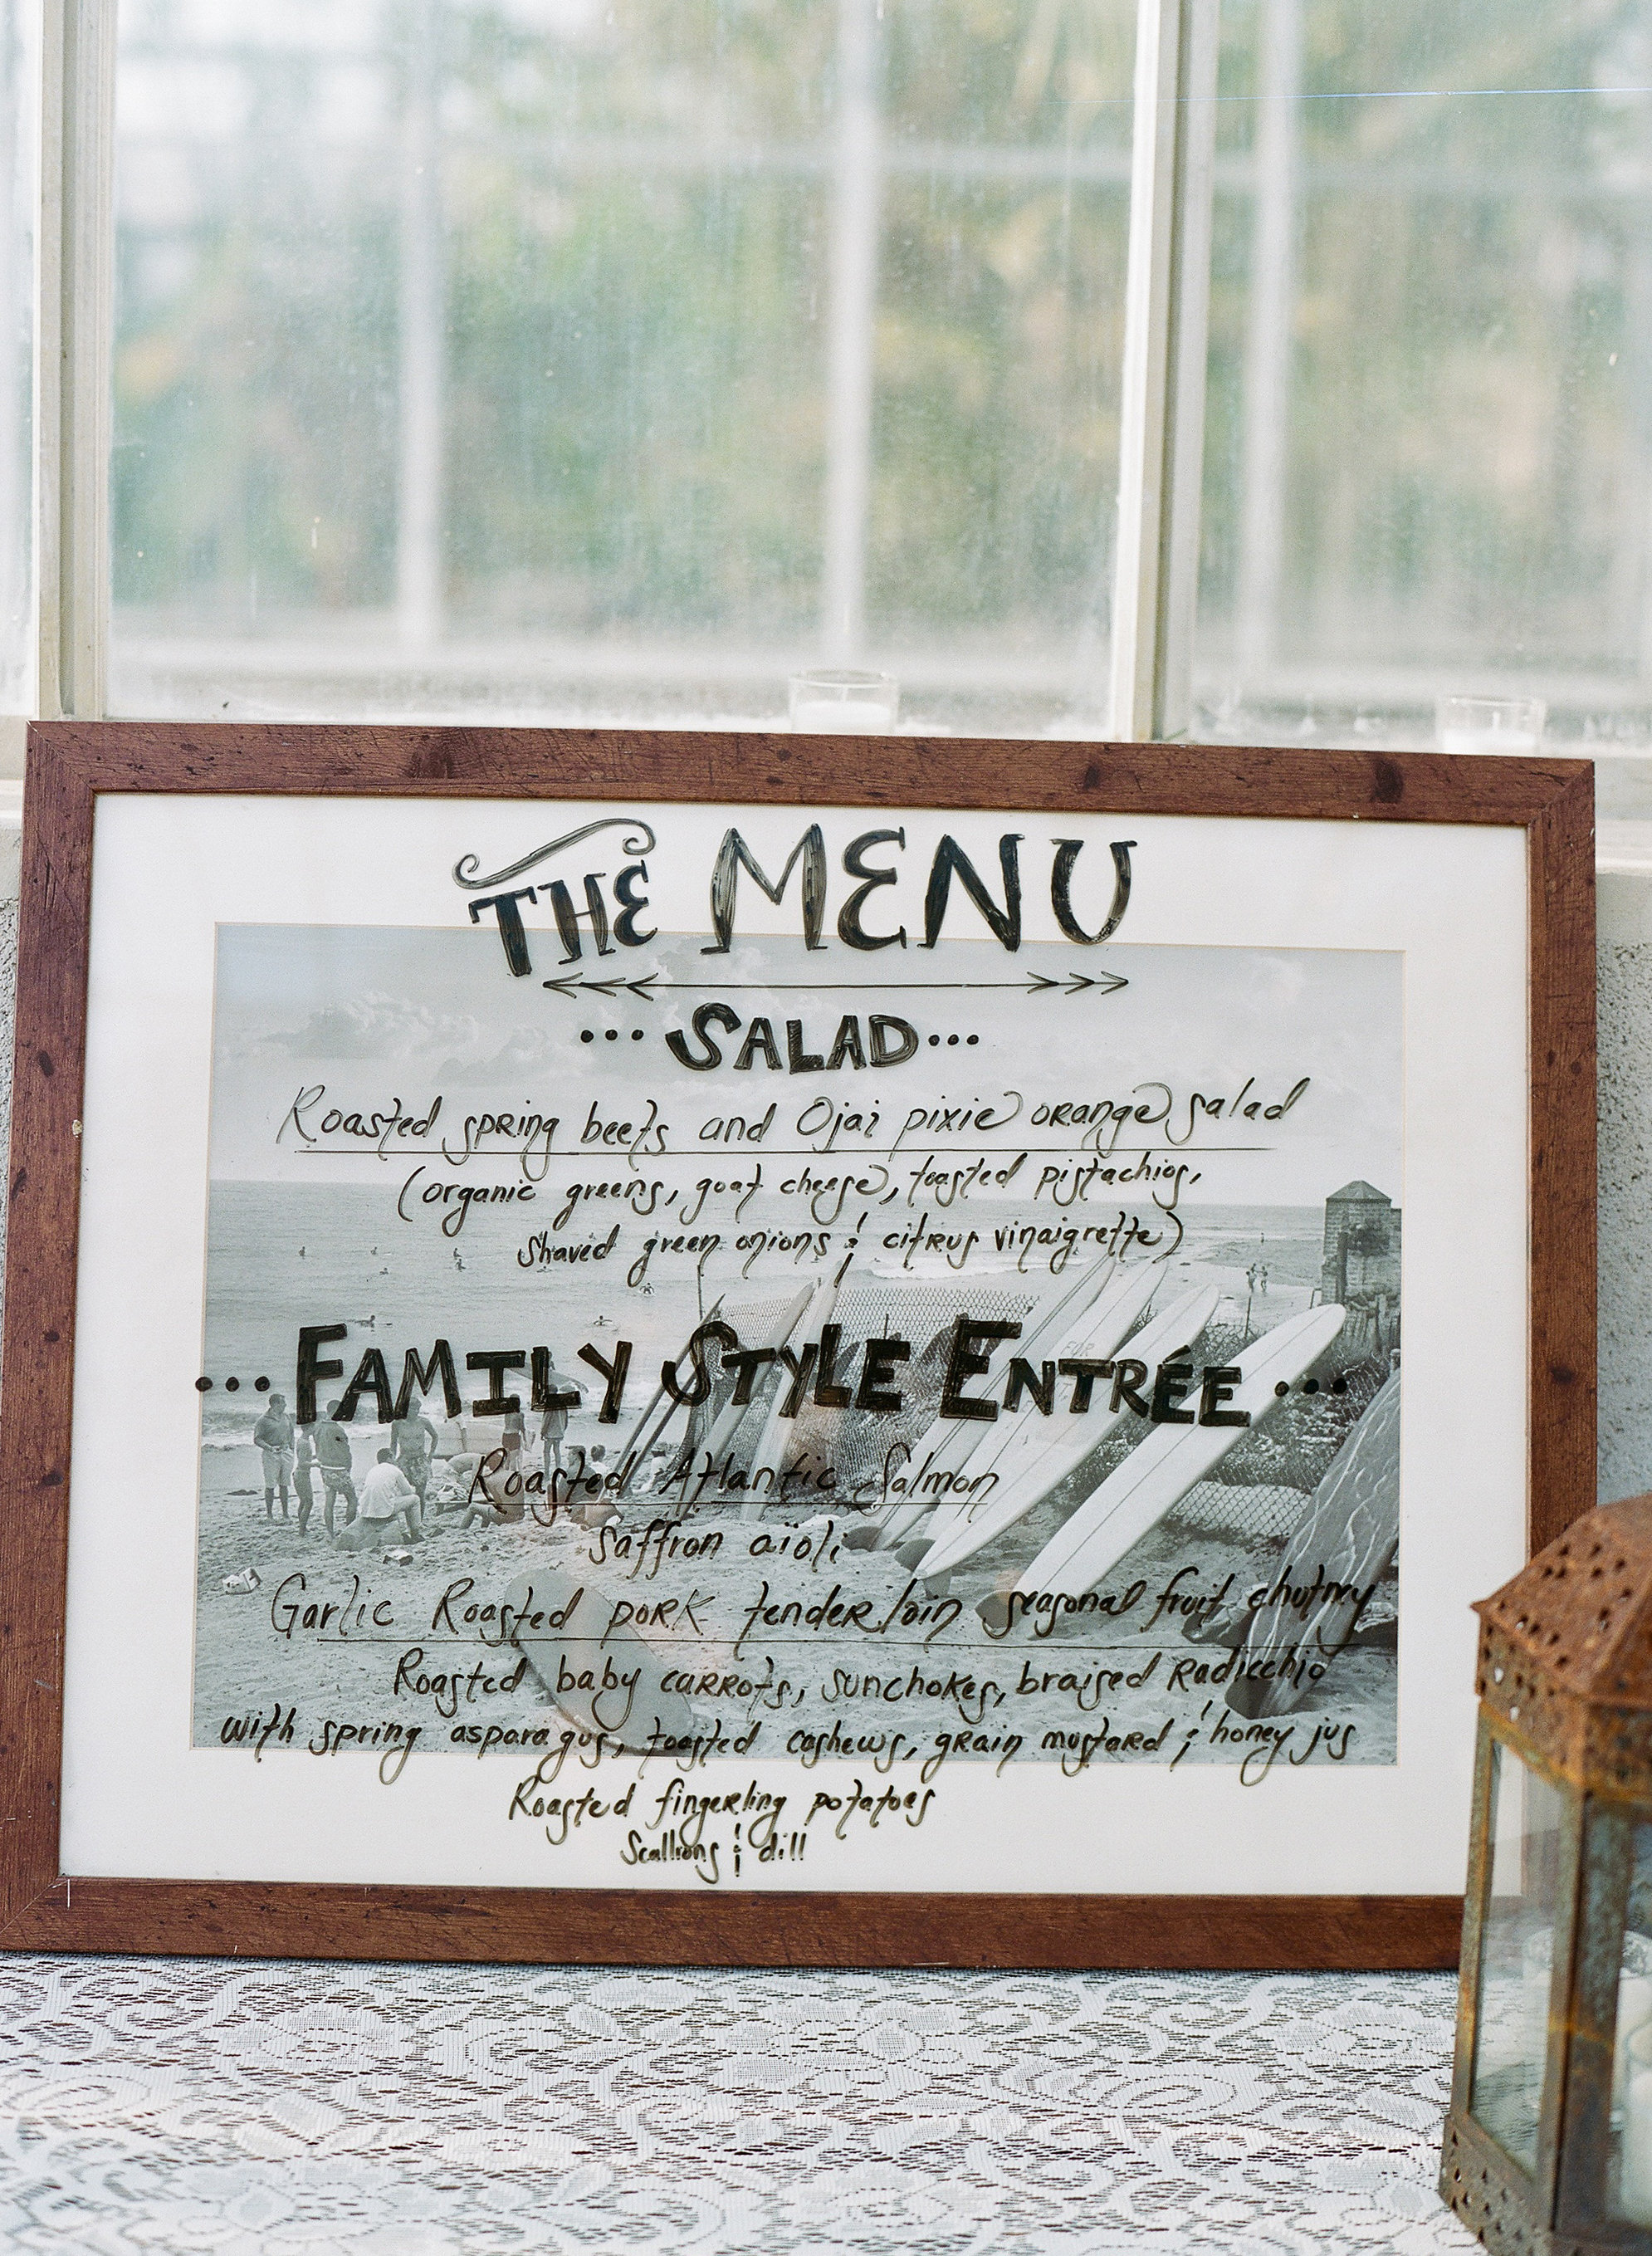 THE MENU
... SALAD ...
Roasted spring beets and Ojai pixie orange salad
(organic greens, goat cheese, toasted pistachios,
Shaved green onions & citrus vinaigrette)
... FAMILY STYLE ENTRÉE ...
Roasted Atlantic Salmon
Saffron aïoli
Garlic Roasted pork tenderloin seasonal fruit chutney
Roasted baby carrots, sunchokes, braised Radicchio
with spring asparagus, toasted cashews, grain mustard & honey jus
Roasted fingerling potatoes
Scallions & dill